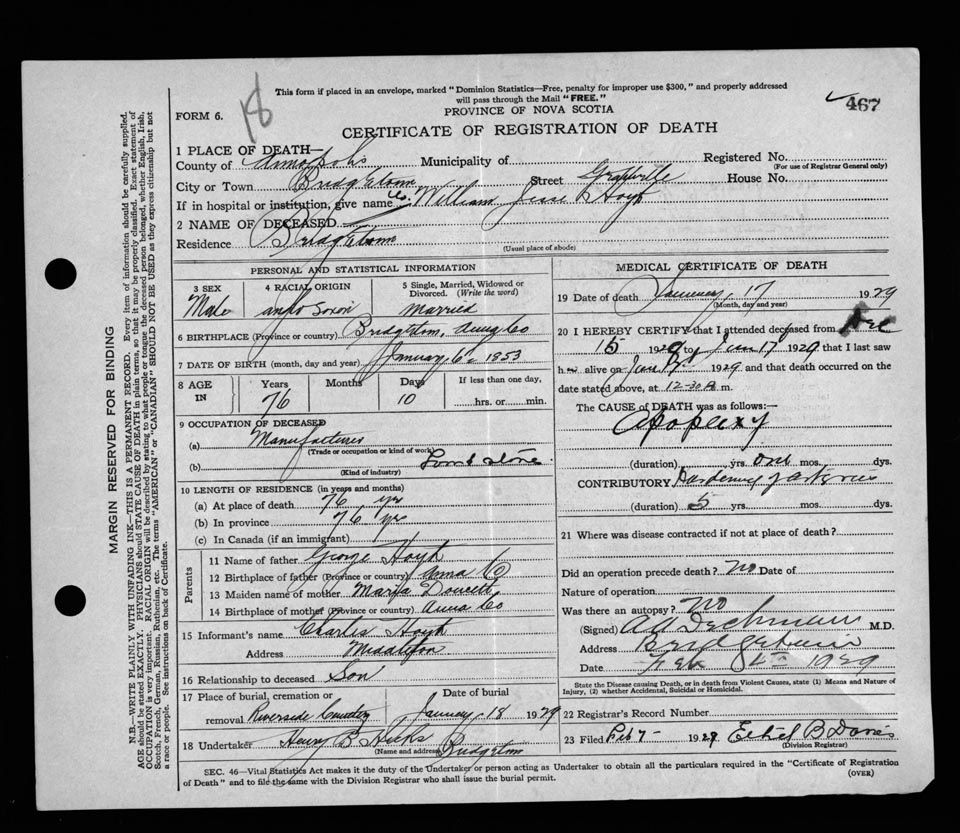 18
This form if placed in an envelope, marked "Dominion Statistics—Free, penalty for improper use $300," and properly addressed
will pass through the Mail "FREE."
467
FORM 6.
PROVINCE OF NOVA SCOTIA
CERTIFICATE OF REGISTRATION OF DEATH
1 PLACE OF DEATH—
County of Annapolis Municipality of Registered No.
(For use of Registrar General only)
City or Town Bridgetown Street Granville House No.
If in hospital or institution, give name
William Jesse Hoyt
2 NAME OF DECEASED
Residence Bridgetown
(Usual place of abode)
PERSONAL AND STATISTICAL INFORMATION
3 SEX Male
4 RACIAL ORIGIN Anglo Saxon
5 Single, Married, Widowed or Divorced. (Write the word) Married
6 BIRTHPLACE (Province or country) Bridgetown, Anna Co
7 DATE OF BIRTH (month, day and year) January 6 1853
8 AGE IN Years 76 Months Days 10 If less than one day, hrs. or min.
9 OCCUPATION OF DECEASED
(a) Manufacturer
(Trade or occupation or kind of work)
(b)
(Kind of industry)
10 LENGTH OF RESIDENCE (in years and months)
(a) At place of death 76 yrs
(b) In province 76 yrs
(c) In Canada (if an immigrant)
Parents
11 Name of father George Hoyt
12 Birthplace of father (Province or country) Anna Co
13 Maiden name of mother Maria
14 Birthplace of mother (Province or country) Anna Co
15 Informant's name Charles Hoyt
Address Middleton
16 Relationship to deceased Son
17 Place of burial, cremation or removal Riverside Cemetery
Date of burial January 18 1929
18 Undertaker Henry B Hicks
(Name and address) Bridgetown
MEDICAL CERTIFICATE OF DEATH
19 Date of death January 17 1929
(Month, day and year)
20 I HEREBY CERTIFY that I attended deceased from Dec
15 192 to Jan 17 1929 that I last saw
h alive on Jan 17 1929 and that death occurred on the
date stated above, at 12-30 m.
The CAUSE of DEATH was as follows:—
Apoplexy
(duration) yrs. one mos. dys.
CONTRIBUTORY Hardening of arteries
(duration) 5 yrs. mos. dys.
21 Where was disease contracted if not at place of death?
Did an operation precede death? No Date of
Nature of operation
Was there an autopsy? No
(Signed) A A Dechman M.D.
Address Bridgetown
Date Feb 1929
State the Disease causing Death, or in death from Violent Causes, state (1) Means and Nature of
Injury, (2) whether Accidental, Suicidal or Homicidal.
22 Registrar's Record Number
23 Filed Feb 7 1929 Ethel B Davis
(Division Registrar)
SEC. 46—Vital Statistics Act makes it the duty of the Undertaker or person acting as Undertaker to obtain all the particulars required in the "Certificate of Registration
of Death" and to file the same with the Division Registrar who shall issue the burial permit.
(OVER)
MARGIN RESERVED FOR BINDING
N.B.—WRITE PLAINLY WITH UNFADING INK—THIS IS A PERMANENT RECORD. Every item of information should be carefully supplied.
AGE should be stated EXACTLY. PHYSICIANS should STATE CAUSE OF DEATH in plain terms, so that it may be properly classified. Exact statement of
OCCUPATION is very important. RACIAL ORIGIN will be described by stating to what people or tongue the deceased person belonged, whether English, Irish,
Scotch, French, German, Russian, Ruthenian, etc. The terms "AMERICAN" or "CANADIAN" SHOULD NOT BE USED as they express citizenship but not
a race or people. See instructions on back of Certificate.